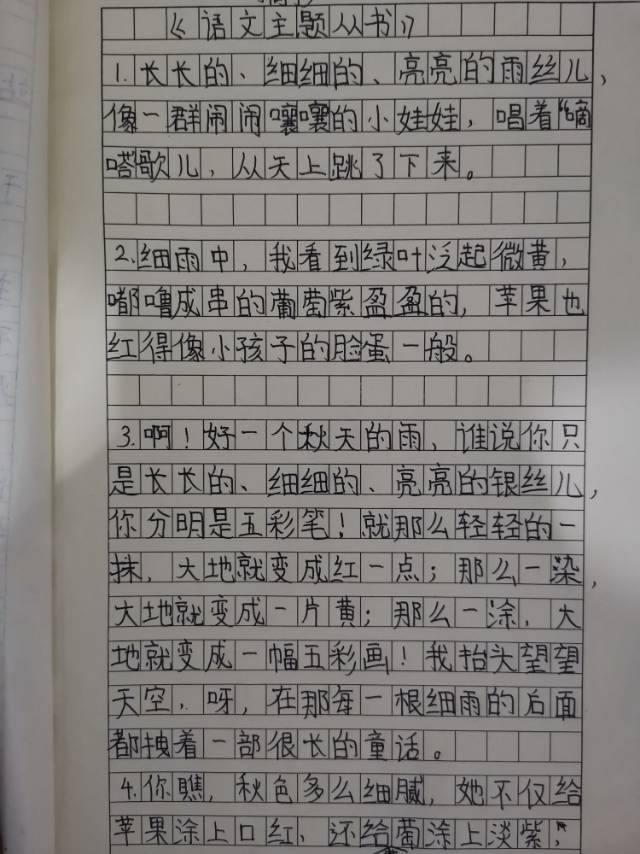 《语文主题丛书》
1.长长的、细细的、亮亮的雨丝儿,
像一群闹闹嚷嚷的小娃娃,唱着“嘀
嗒歌儿,从天上跳了下来。
2.细雨中,我看到绿叶泛起微黄,
嘟噜成串的葡萄紫盈盈的,苹果也
红得像小孩子的脸蛋一般。
3.啊!好一个秋天的雨、谁说你只
是长长的、细细的、亮亮的银丝儿,
你分明是五彩笔!就那么轻轻的一
抹,大地就变成红一点;那么一染,
大地就变成一片黄;那么一涂,大
地就变成一幅五彩画!我抬头望望
天空,呀,在那每一根细雨的后面
都拽着一部很长的童话。
4.你瞧,秋色多么细腻,她不仅给
苹果涂上口红、还给葡涂上淡紫;